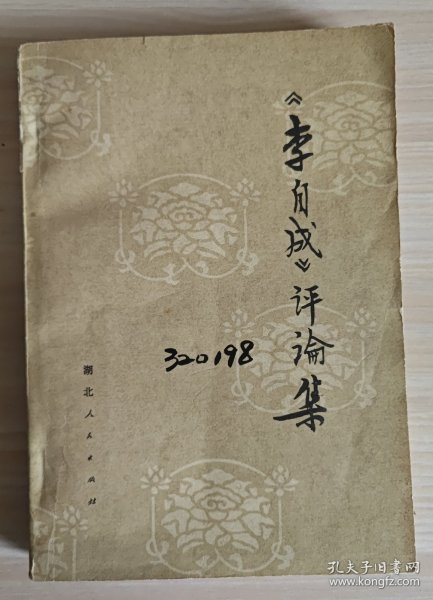 《李自成》评论集
320198
湖北人民出版社
孔夫子旧书网
www.kongfz.com